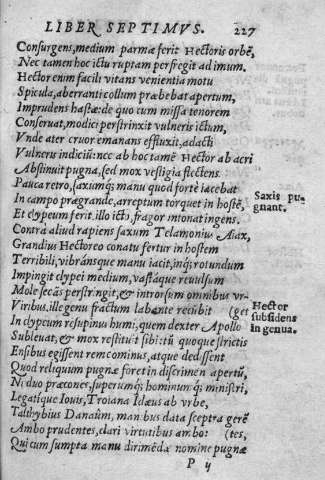 LIBER SEPTIMVS. 227
Consurgens, medium parmæ ferit Hectoris orbẽ,
Nec tamen hoc ictu ruptam perfregit ad imum.
Hector enim facili vitans venientia motu
Spicula, aberranti collum præbebat apertum,
Imprudens hastæ: de quo cùm missa tenorem
Conseruat, modici perstrinxit vulneris ictum,
Vnde ater cruor emanans effluxit, adacti
Vulneris indiciũ: nec ab hoc tamẽ Hector ab acri
Abstinuit pugna, sed mox vestigia flectens
Pauca retro, saxumq; manu quod fortè iacebat
Saxis pu-
gnant.
In campo prægrande, arreptum torquet in hostẽ,
Et clypeum ferit. illo icto, fragor intonat ingens.
Contrà aliud rapiens saxum Telamonius Aiax,
Grandius Hectoreo conatu fertur in hostem
Terribili, vibránsque manu iacit, inq; rotundum
Impingit clypei medium, vastáque reuulsum
Mole secãs perstringit, & introrsum omnibus vr-
Viribus, ille genu fractum labante recũbit (get
Hector
subsidens
in genua.
In clypeum resupinus humi, quem dexter Apollo
Subleuat, & mox restituit sibi: tũ quoque strictis
Ensibus egissent rem cominus, atque dedissent
Quod reliquum pugnæ foret in discrimen apertũ,
Ni duo præcones, superumq; hominumq; ministri,
Legatíque Iouis, Troiana Idæus ab vrbe,
Talthybius Danaûm, manibus data sceptra gerẽ
Ambo prudentes, clari virtutibus ambo: (tes,
Qui cùm sumpta manu dirimẽda nomine pugnæ
P ij